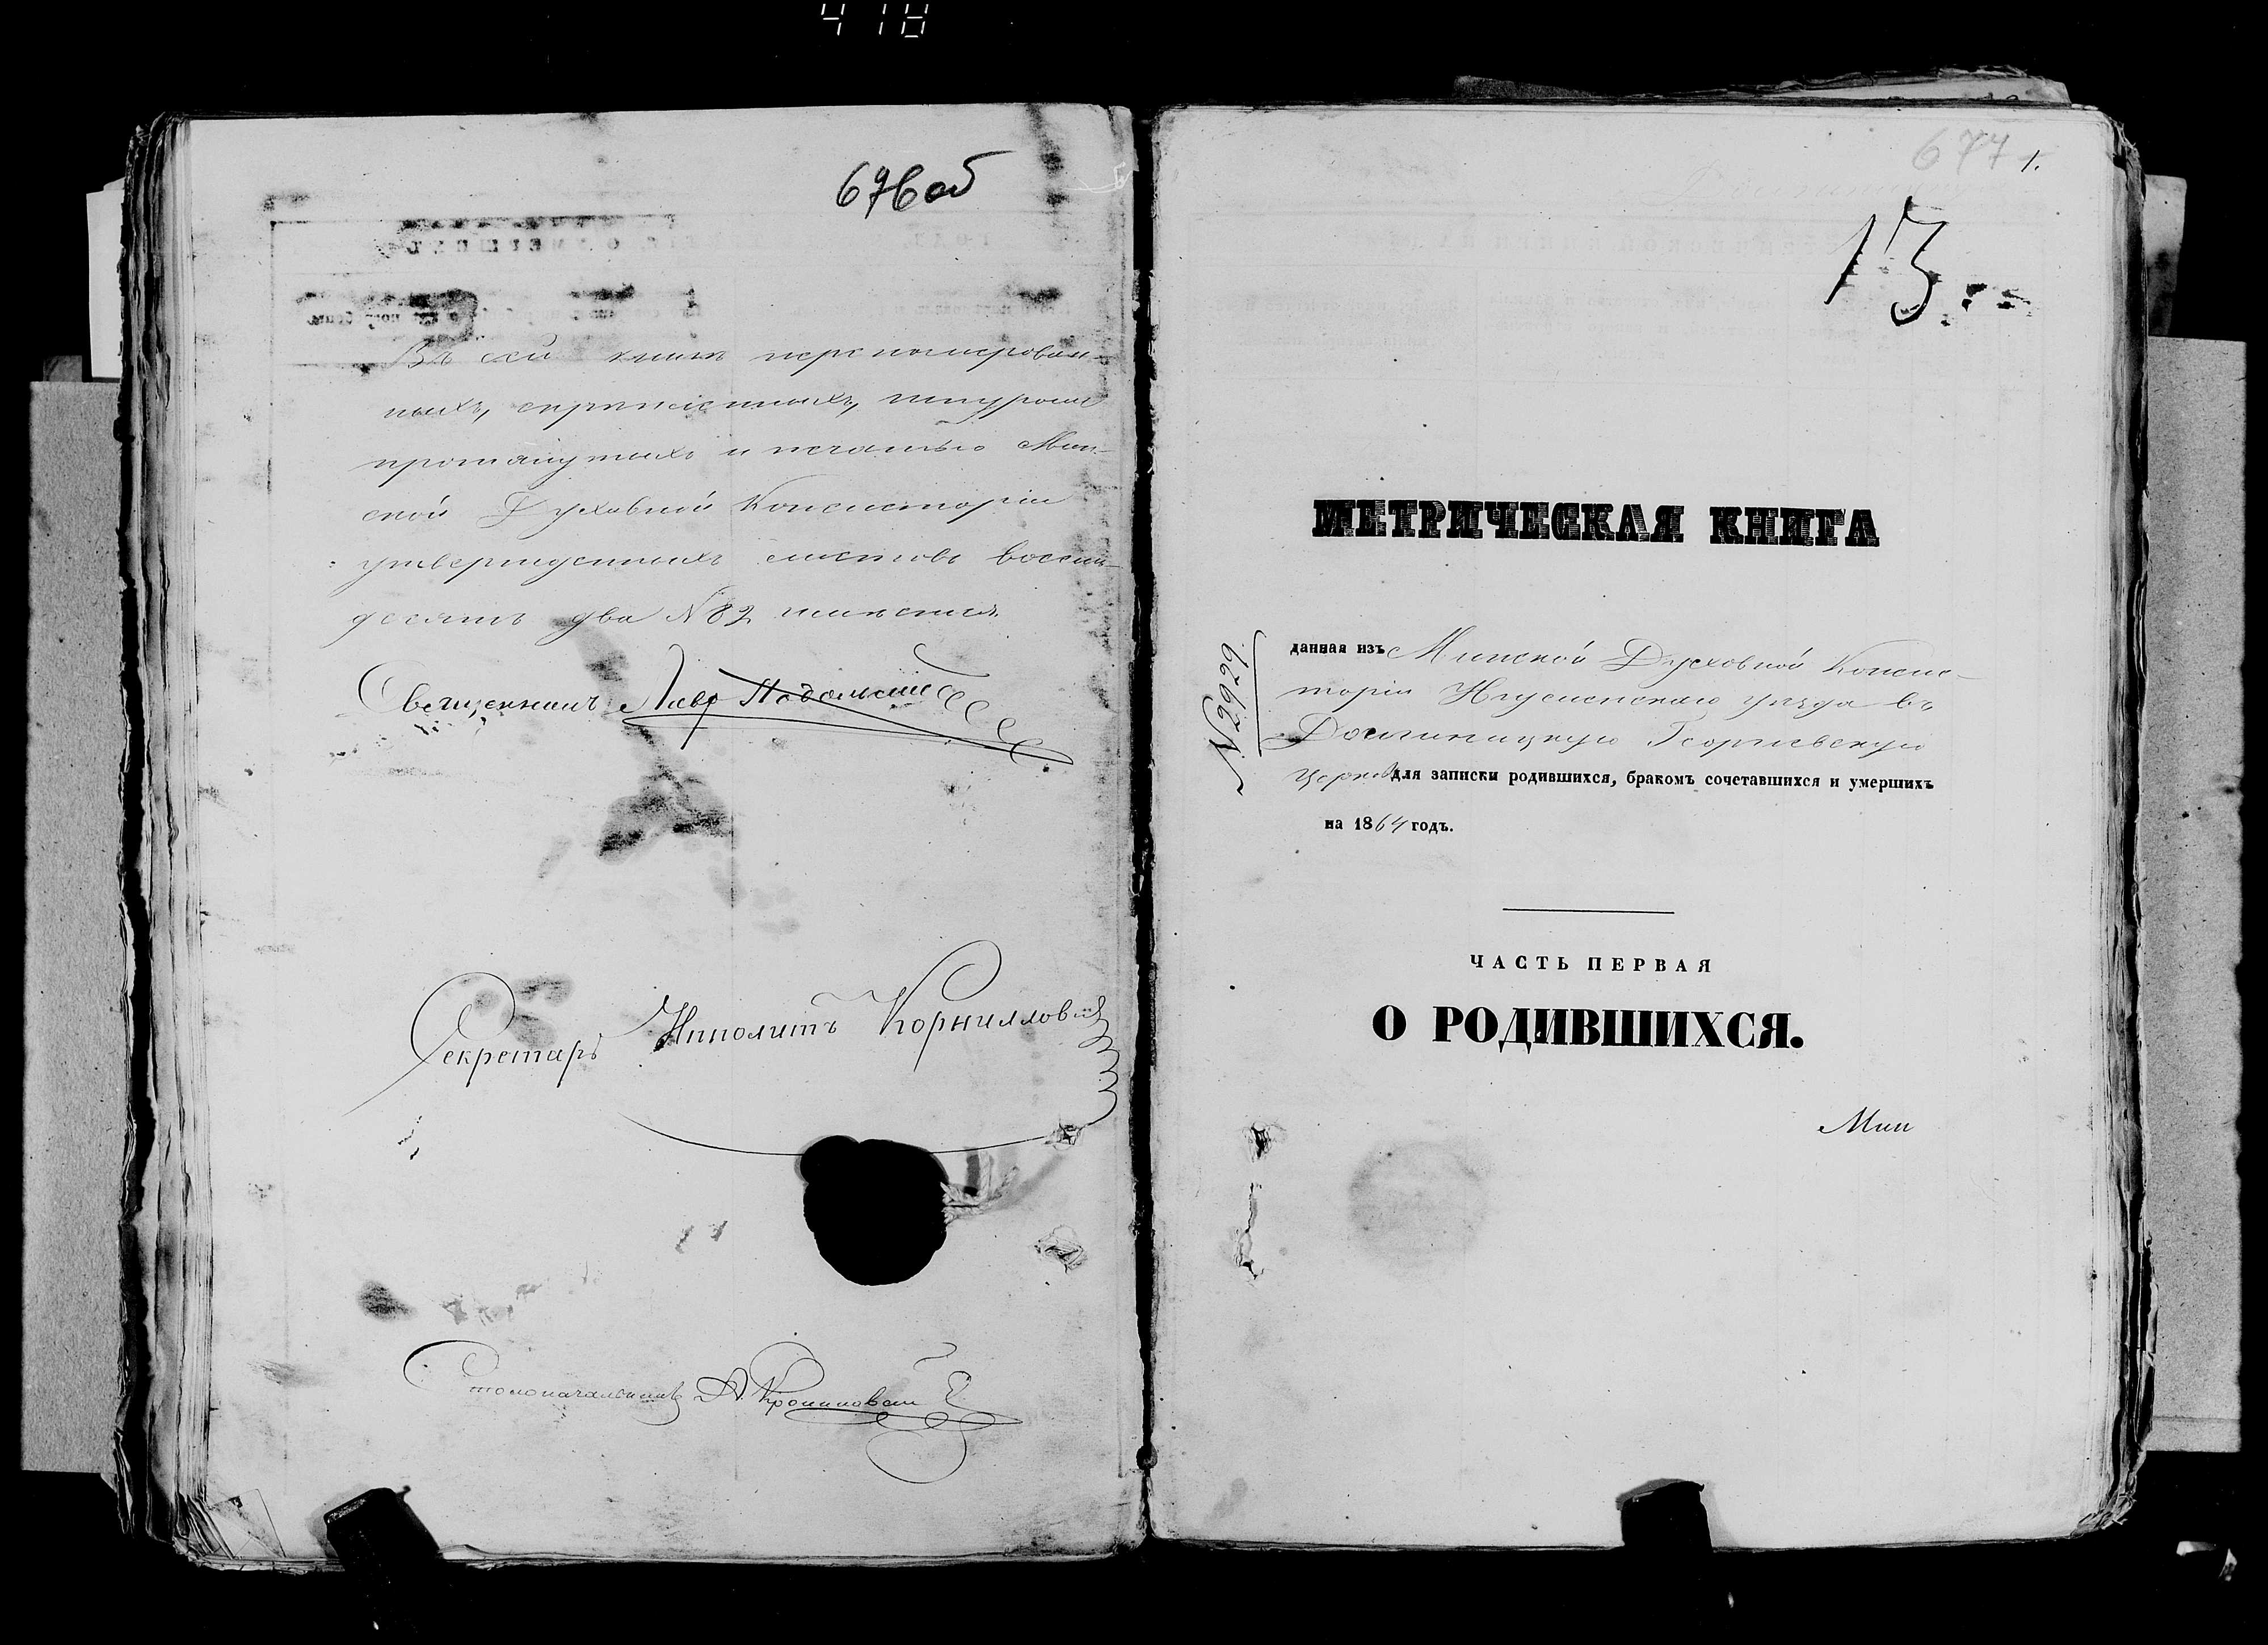 418
676 об
Въ сей книгѣ перенумерован-
ныхъ, скрѣпленныхъ, шнуромъ
протянутыхъ и печатью Мин-
ской Духовной Консисторіи
утвержденныхъ листовъ восемь-
десятъ два № 82 имѣется.
Священникъ
Секретарь Ипполитъ Корниловъ
Столоначальникъ А.
677 1.
13.
МЕТРИЧЕСКАЯ КНИГА
№ 2929.
данная изъ Минской Духовной Консис-
торіи Игуменскаго уѣзда въ
Георгіевскую
церковь для записки родившихся, бракомъ сочетавшихся и умершихъ
на 1864 годъ.
ЧАСТЬ ПЕРВАЯ
О РОДИВШИХСЯ.
Мин